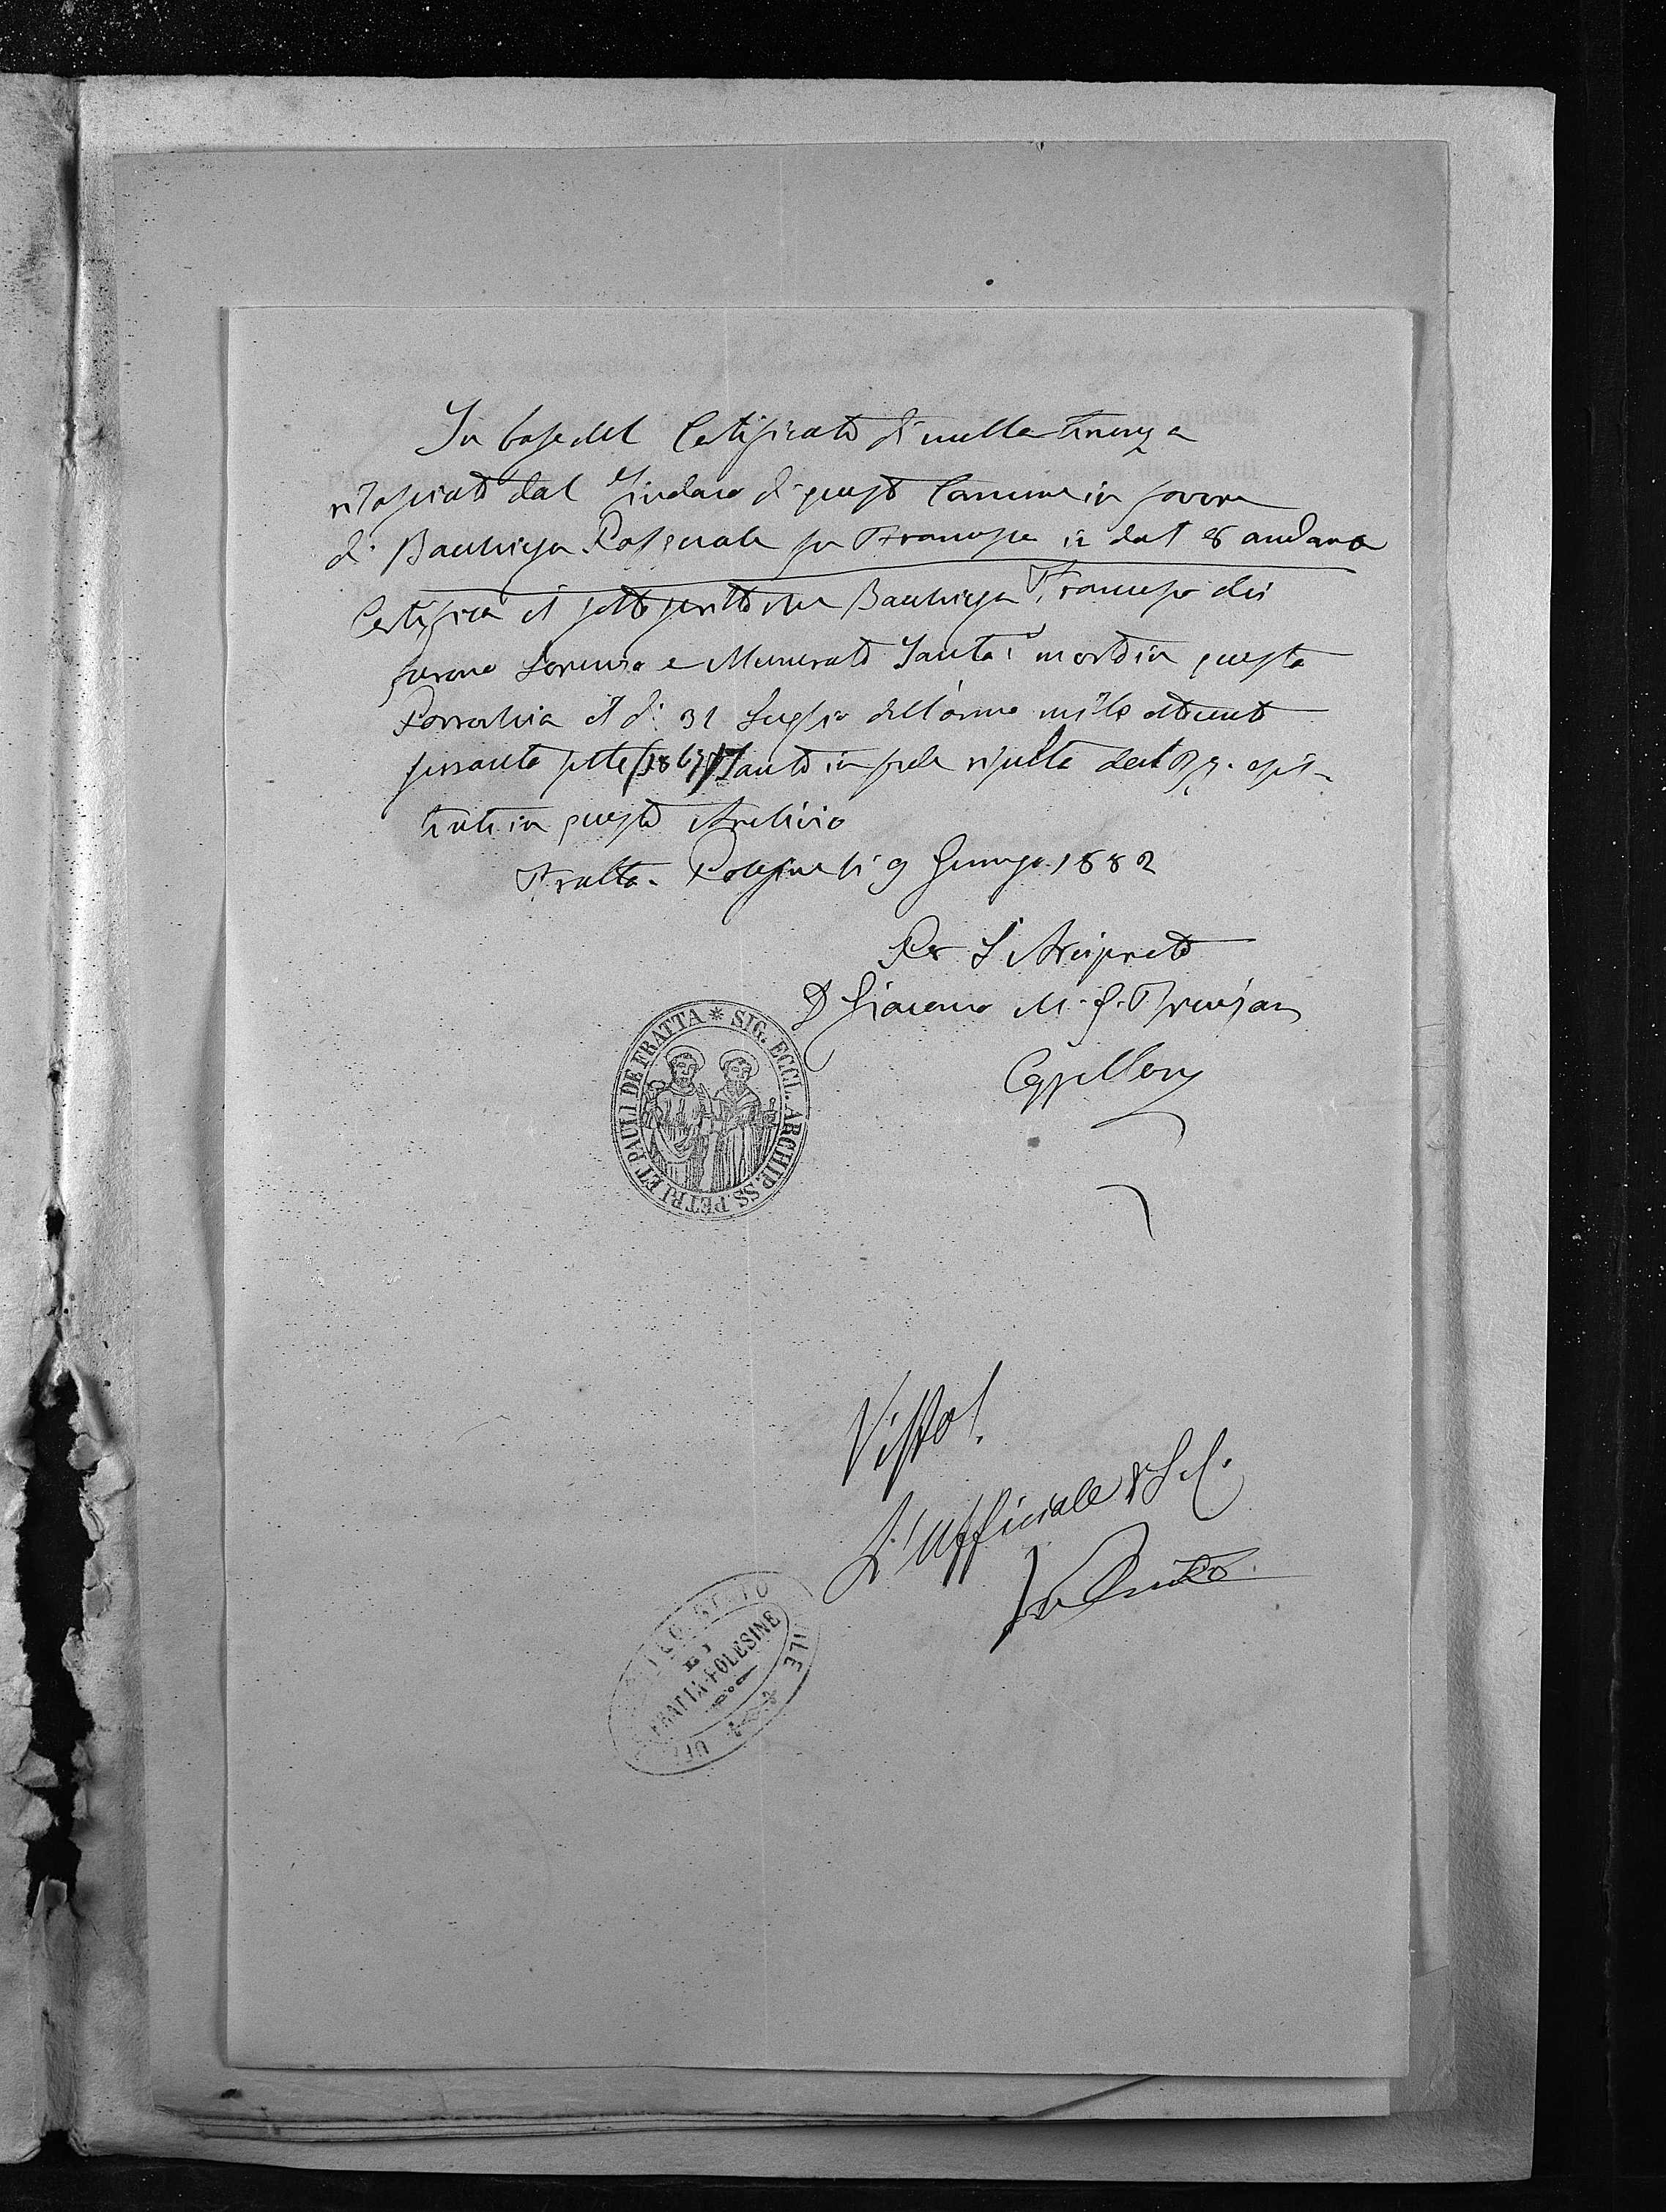 In base del Certificato di nulla tenenza
rilasciato dal Sindaco di questo Comune in favore
di Bacchiega Pasquale fu Francesco in dat 8 andante
Certifica il sottoscritto che Bacchiega Francesco dei
furono Lorenzo e Munerato Santa è morto in questa
Parrochia il dì 31 Luglio dell'anno mille ottocento
sessanta sette (1867) Tanto in fede risulta dal Rg. esis-
tente in questo Archivio
Fratta-Polesine li 9 Giugno 1882
Per L'Arciprete
D Giacomo M. G. Trevisan
Cappellano
SIG. ECCL. ARCHIP. SS. PETRI ET PAULI DE FRATTA
Visto!
L'Ufficiale di S. C.
DI
FRATTA POLESINE